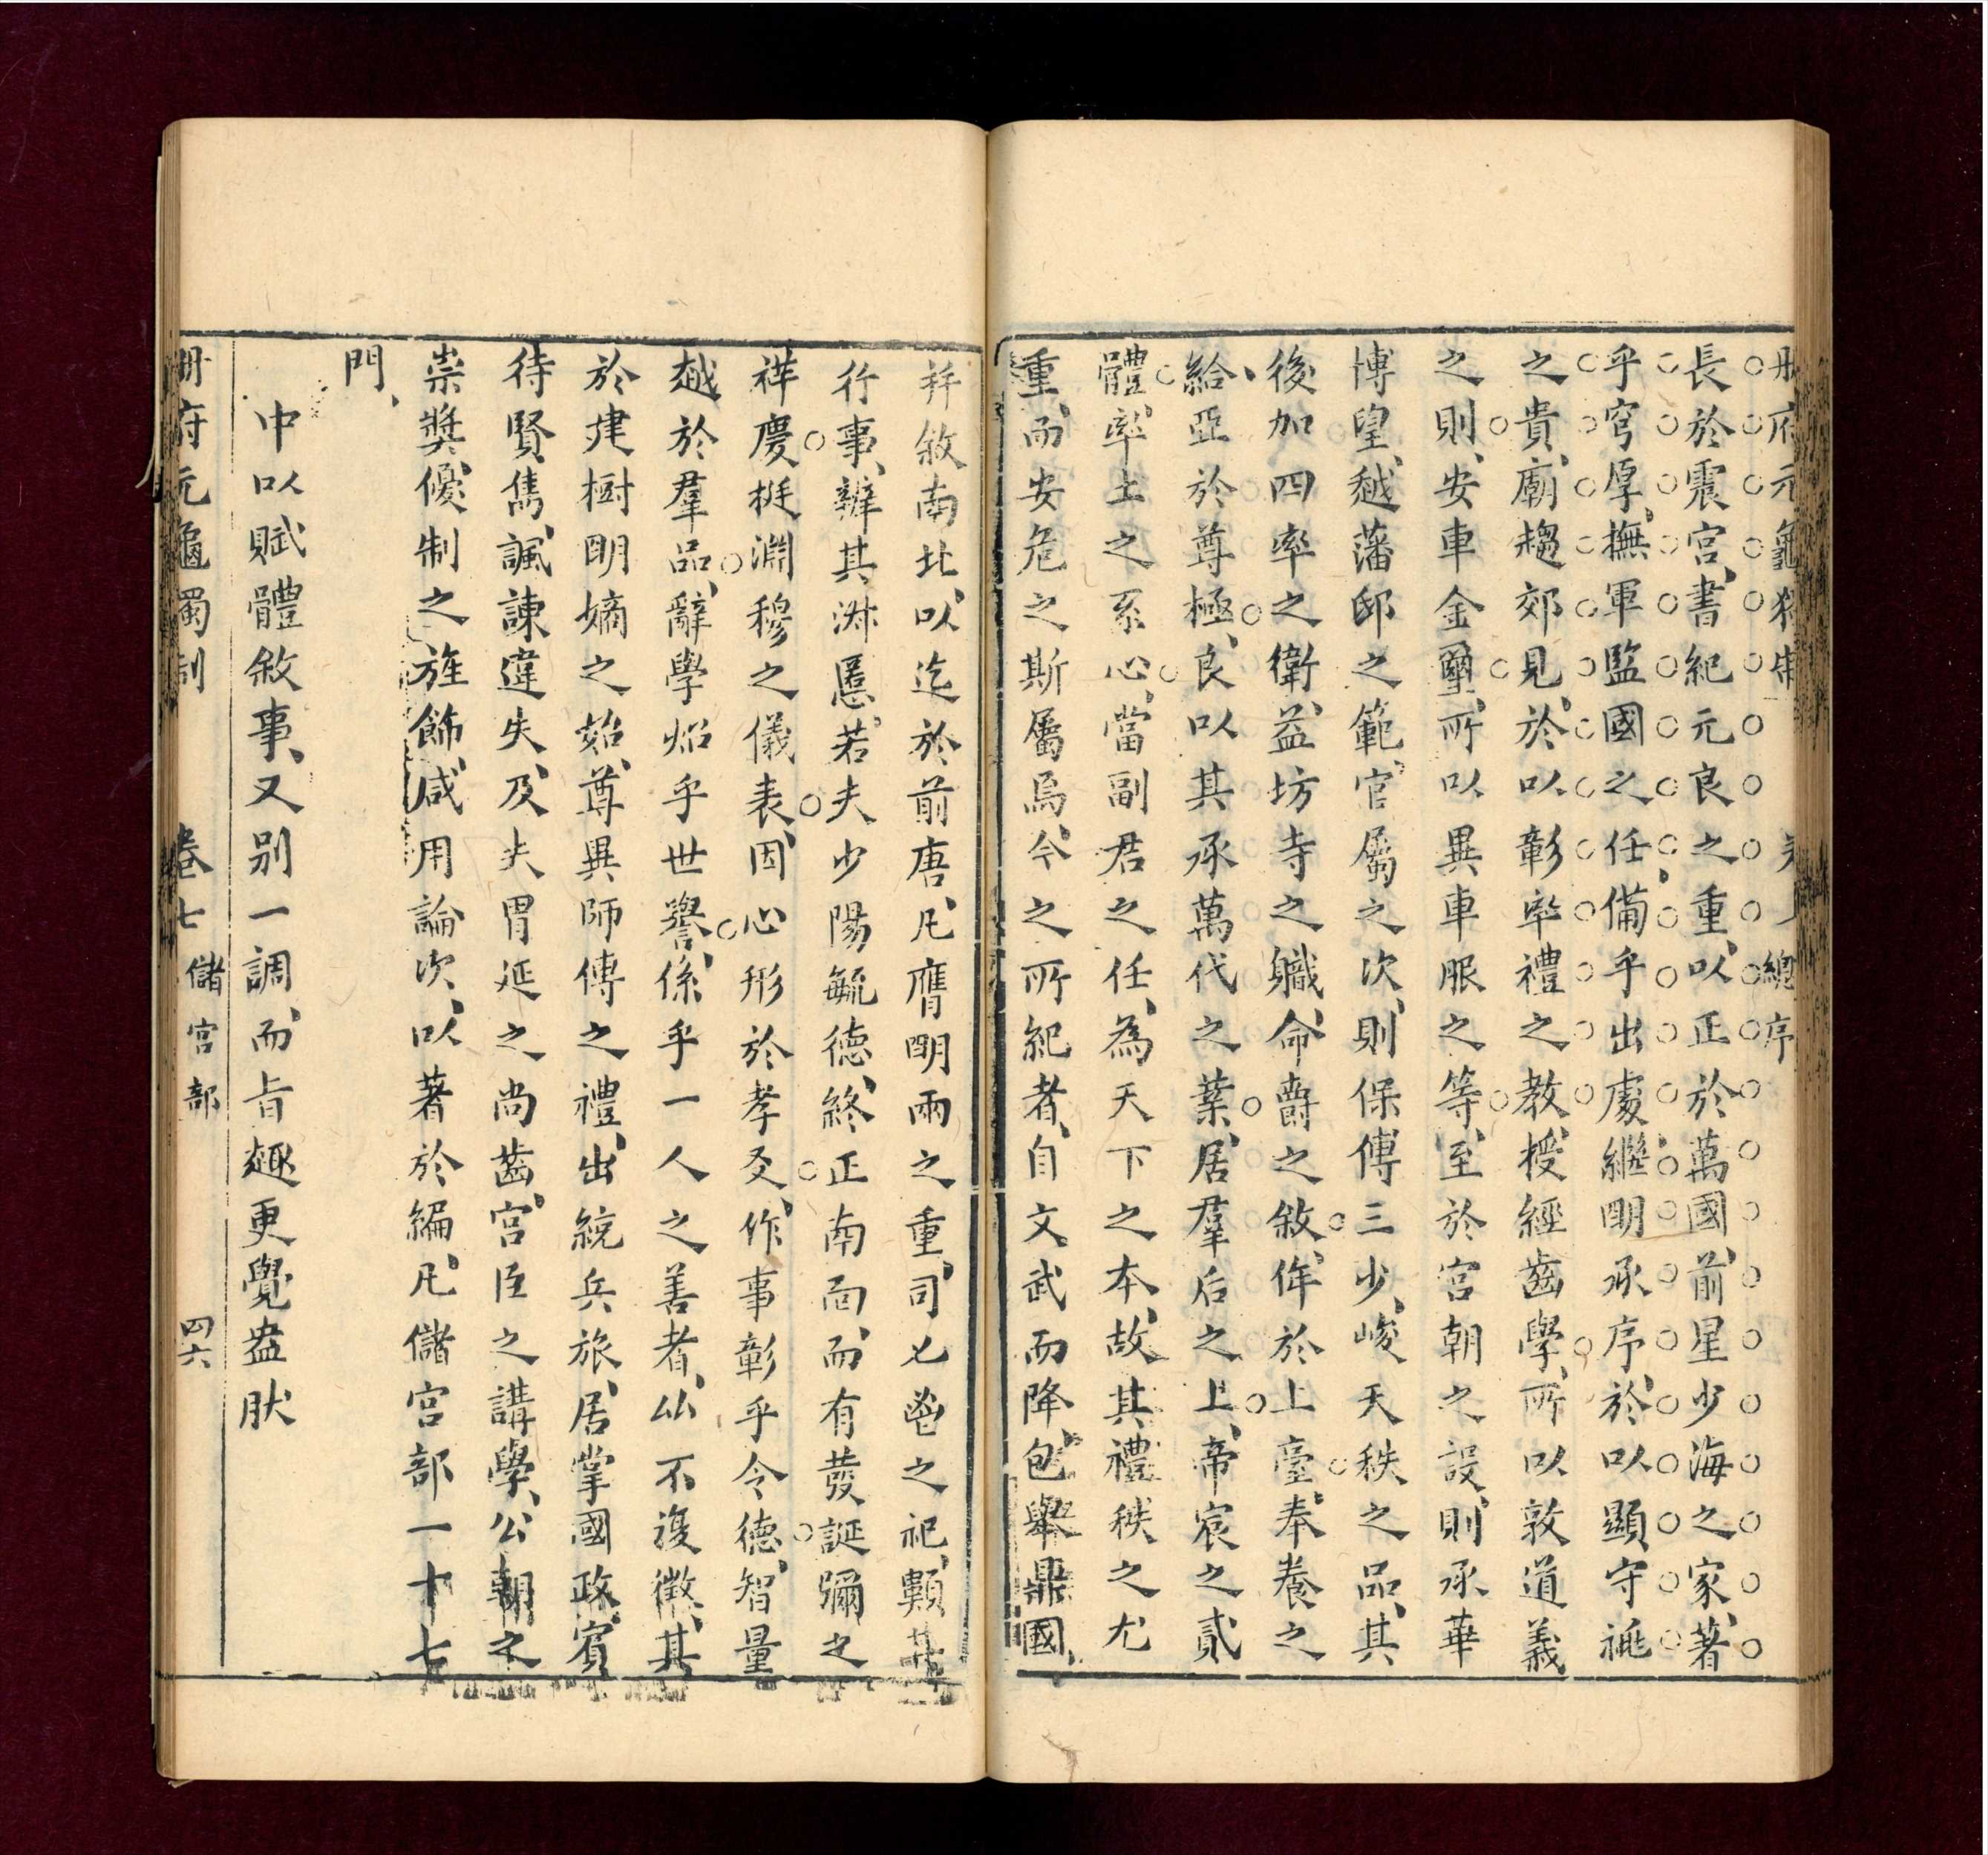 冊府元龜獨制 總序
長於震宮、書紀元良之重、以正於萬國、前星少海之家、著
乎穹厚、撫軍監國之任、備乎出處、繼明承序、於以顯守祧
之貴、廟趨郊見、於以彰率禮之教、授經齒學、所以敦道義
之則、安車金璽、所以異車服之等、至於宮朝之設、則承華
博望、越藩邸之範、官屬之次、則保傅三少、峻天秩之品、其
後加四率之衛、益坊寺之職、命爵之敘、侔於上臺、奉養之
給、亞於尊極、良以其承萬代之業、居羣后之上、帝宸之貳
體、率土之系心、當副君之任、為天下之本、故其禮秩之尤
重、而安危之斯屬焉、今之所紀者、自文武而降、包舉鼎國、
并敘南北、以迄於前唐、凡膺明兩之重、司匕鬯之祀、顆其
行事、辨其淑慝、若夫少陽毓德、終正南面、而有發誕彌之
祥慶、挺淵穆之儀表、因心形於孝友、作事彰乎令德、智量
越於羣品、辭學炤乎世譽、係乎一人之善者、以不復徵、其
於建樹明嫡之始、尊異師傅之禮、出統兵旅、居掌國政、賓
待賢雋、諷諫違失、及夫胄延之尚齒、宮臣之講學、公朝之
崇獎、優制之旌飾、咸用論次、以著於編、凡儲宮部一十七
門、
中以賦體敘事、又別一調、而旨趣更覺盎肰
冊府元龜獨制 卷七 儲宮部 四六